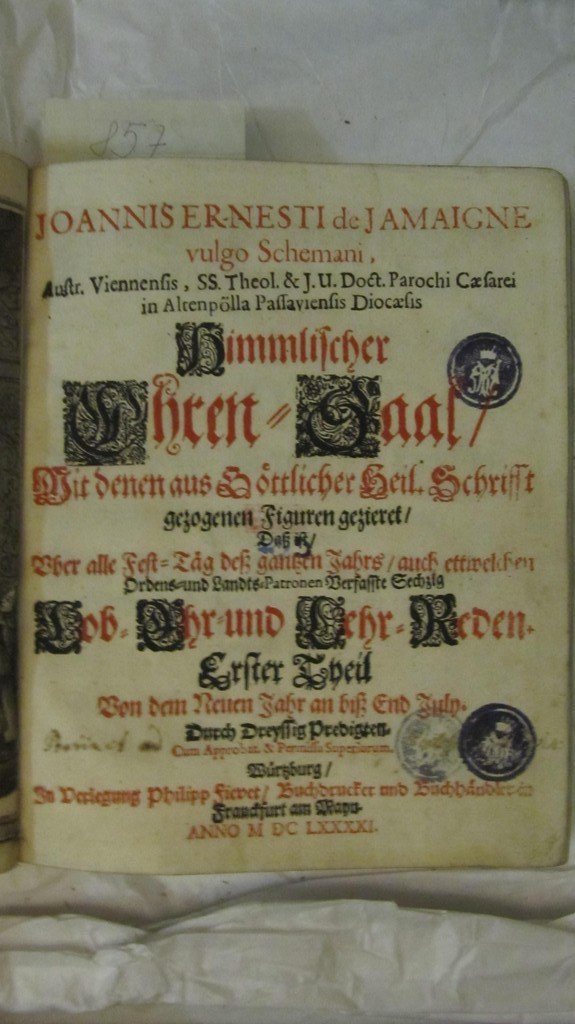 857
JOANNIS ERNESTI de JAMAIGNE
vulgo Schemani,
Austr. Viennensis, SS. Theol. & J. U. Doct. Parochi Cæsarei
in Altenpölla Passaviensis Diocæsis
Himmlischer
Ehren-Saal/
Mit denen aus Göttlicher Heil. Schrifft
gezogenen Figuren gezieret/
Daß ist/
Uber alle Fest-Täg deß gantzen Jahrs/ auch ettwelchen
Ordens-und Landts-Patronen Verfasste Sechzig
Lob- Ehr-und Lehr-Reden.
Erster Theil
Von dem Neuen Jahr an biß End July.
Durch Dreyssig Predigten.
Cum Approbat. & Permissu Superiorum.
Würtzburg/
In Verlegung Philipp Fievet/ Buchdrucker und Buchhändler in
Franckfurt am Mayn.
ANNO M DC LXXXXI.